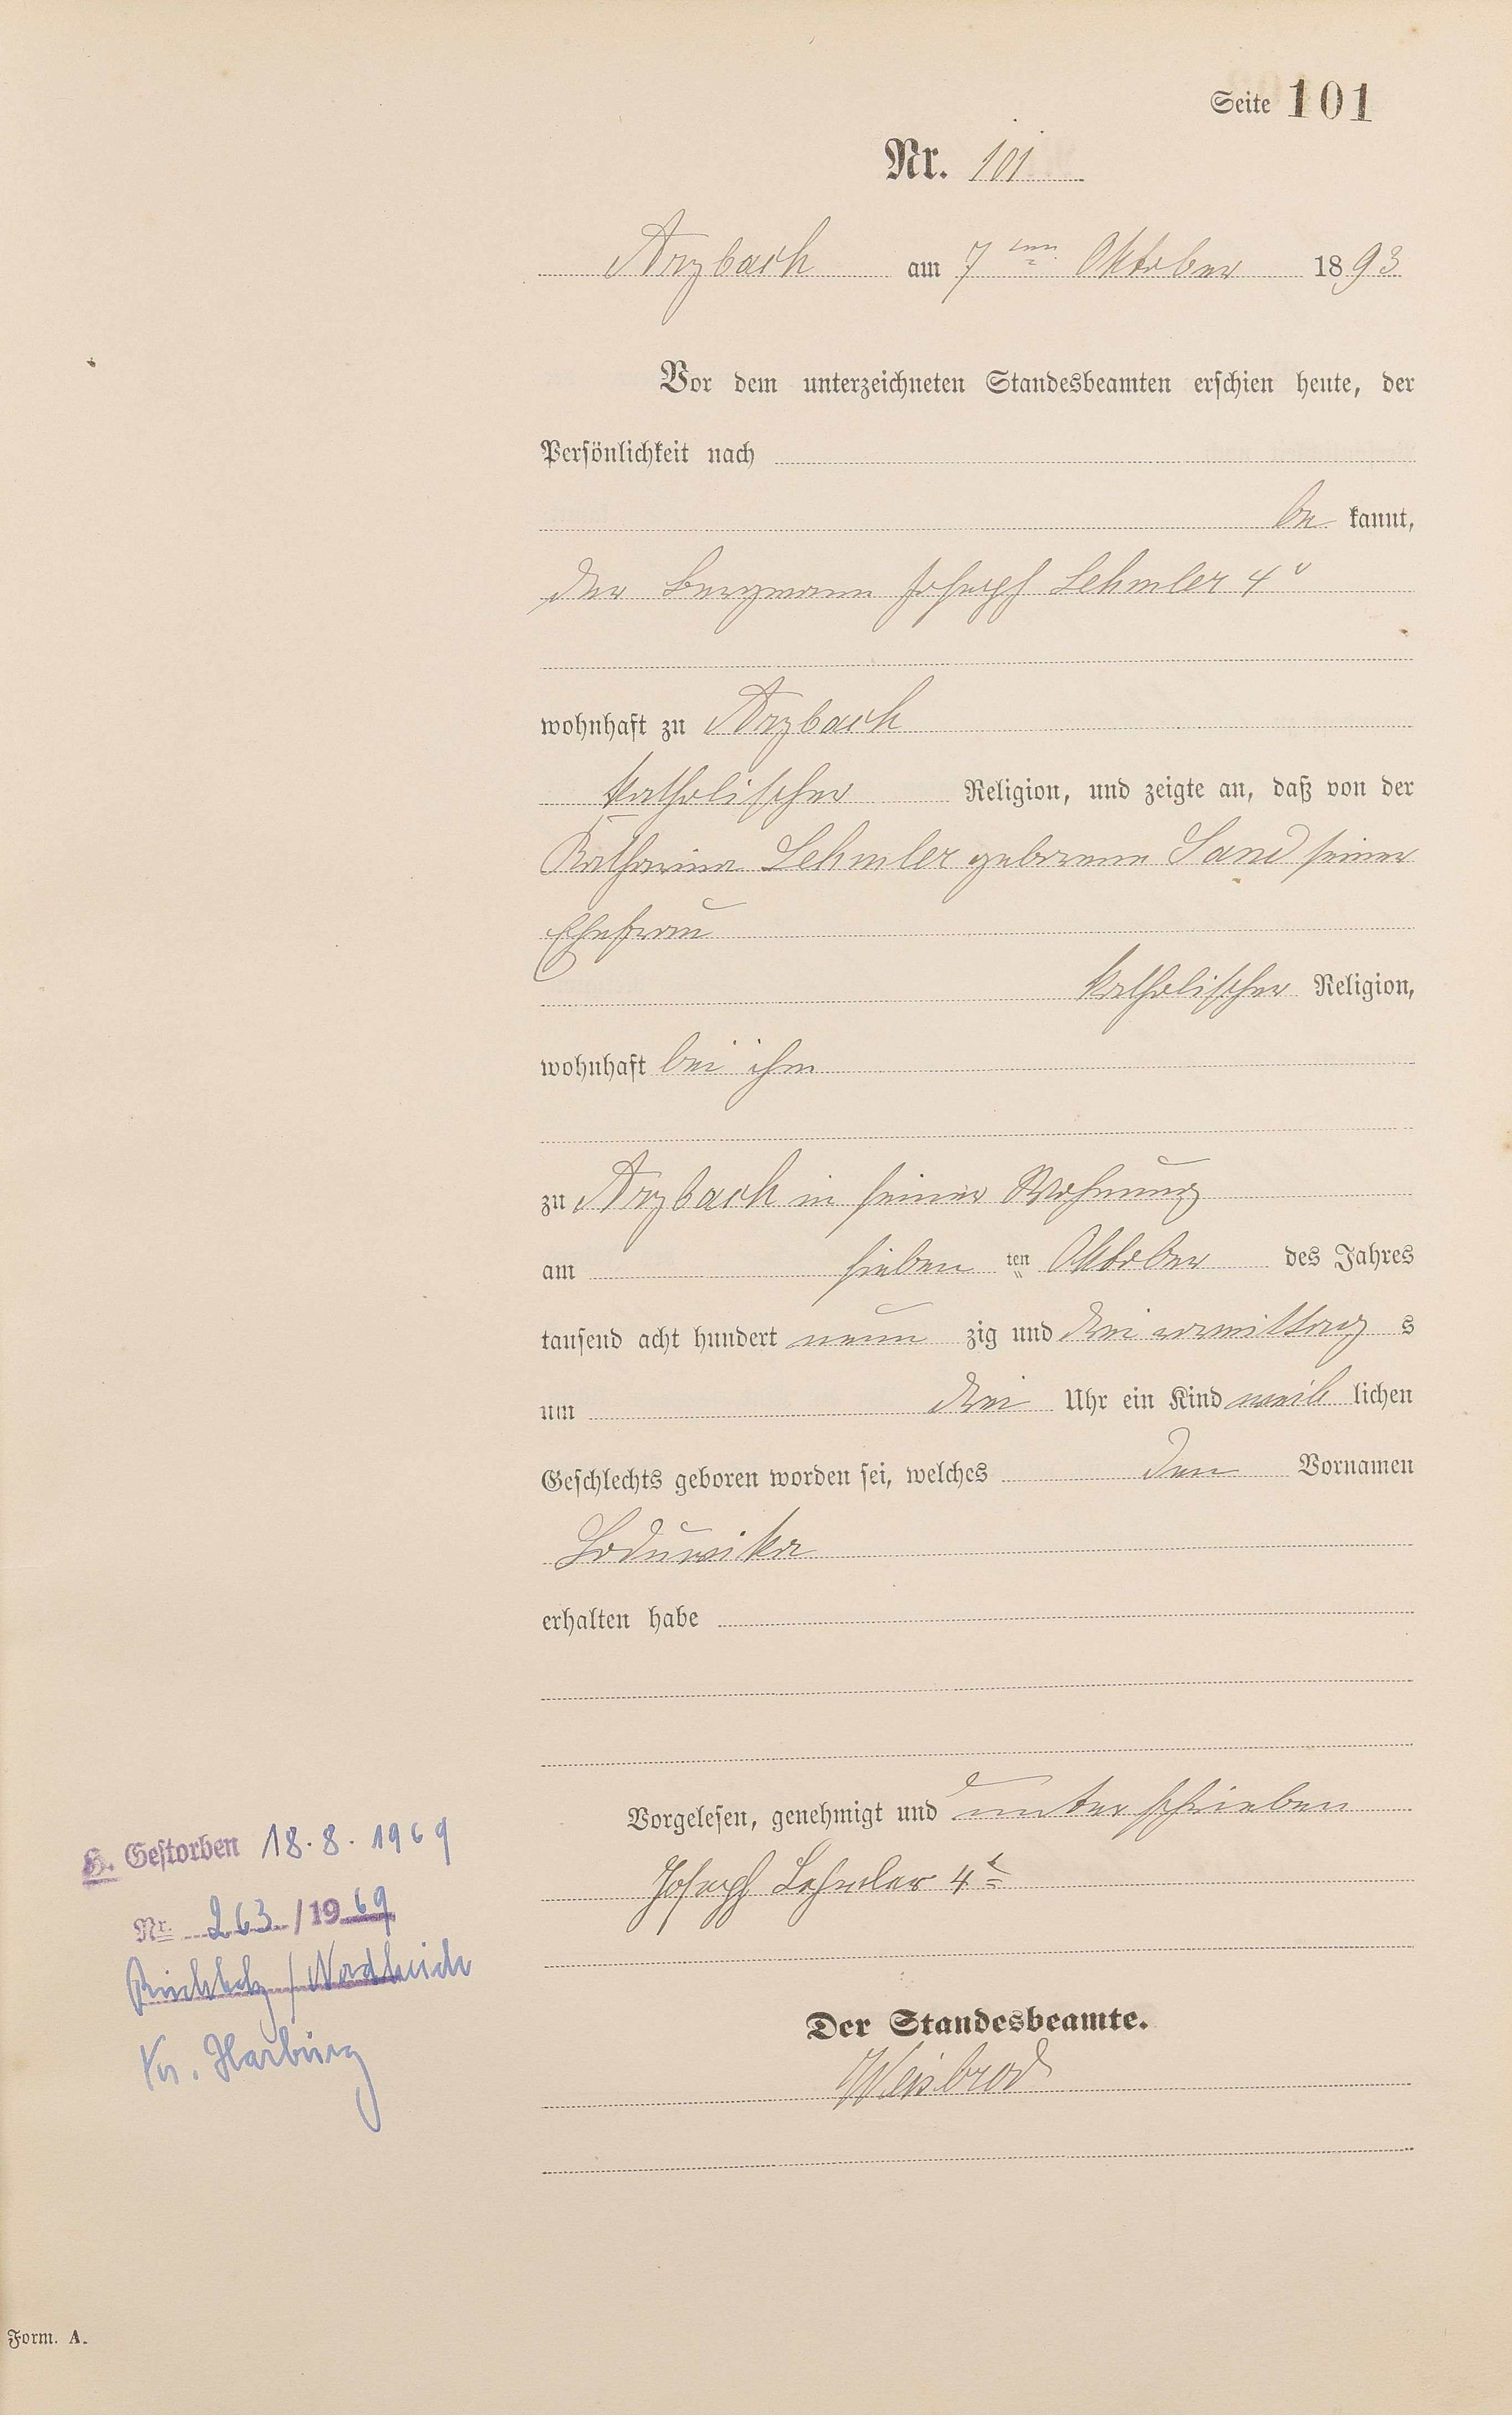 Seite 101
Nr. 101
Arzbach am 7ten Oktober 1893
Vor dem unterzeichneten Standesbeamten erschien heute, der
Persönlichkeit nach
be kannt,
der Bergmann Joseph Lehmler 4r
wohnhaft zu Arzbach
katholischer Religion, und zeigte an, daß von der
Katharina Lehmler geborene Sand seiner
Ehefrau
katholischer Religion,
wohnhaft bei ihm
zu Arzbach in seiner Wohnung
am sieben ten Oktober des Jahres
tausend acht hundert neun zig und drei vormittag s
um drei Uhr ein Kind weib lichen
Geschlechts geboren worden sei, welches den Vornamen
Loduwika
erhalten habe
Vorgelesen, genehmigt und unterschrieben
Joseph Lehmler 4r
H. Gestorben 18.8.1969
Nr. 263/1969
Buchholz/Nordheide
Kr. Harburg
Der Standesbeamte.
Weisbrod
Form. A.